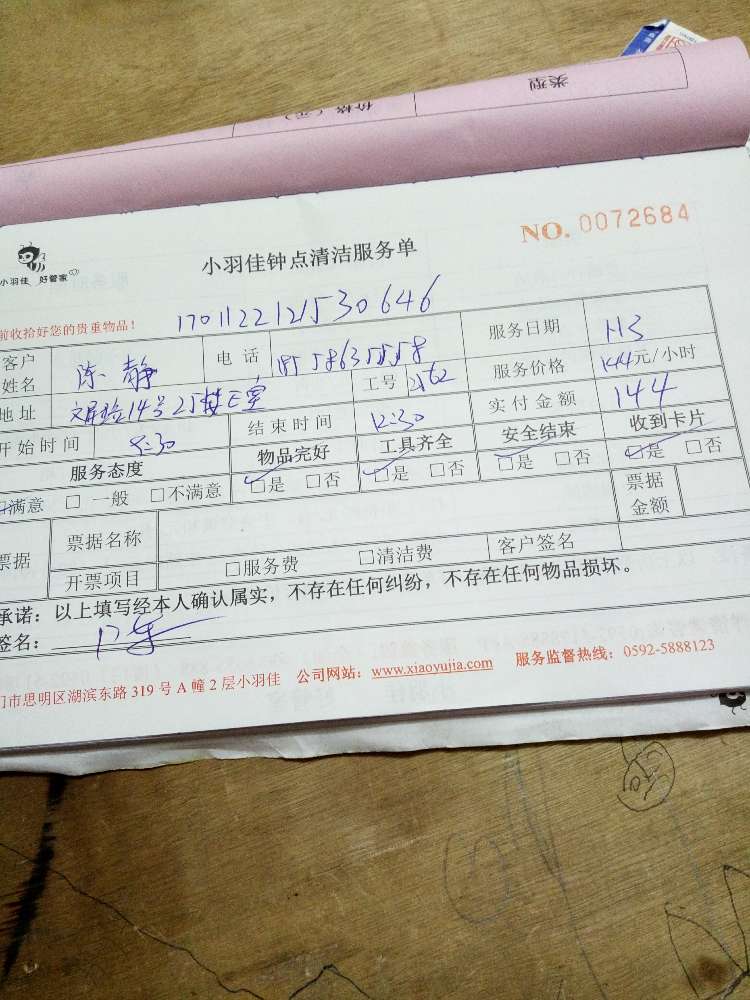 类型
价格（元）
NO. 0072684
小羽佳 好管家
小羽佳钟点清洁服务单
前收拾好您的贵重物品！
1701122121530646
客户姓名 陈静 电话 服务日期 113
地址 14号25楼E室 工号 2162 服务价格 144元/小时
开始时间 8:30 结束时间 12:30 实付金额 144
服务态度 物品完好 工具齐全 安全结束 收到卡片
满意 □ 一般 □不满意 □是 □否 □是 □否 □是 □否 □是 □否
票据 票据名称 票据金额
开票项目 □服务费 □清洁费 客户签名
承诺：以上填写经本人确认属实，不存在任何纠纷，不存在任何物品损坏。
签名：
门市思明区湖滨东路 319 号 A 幢 2 层小羽佳 公司网站：www.xiaoyujia.com 服务监督热线：0592-5888123